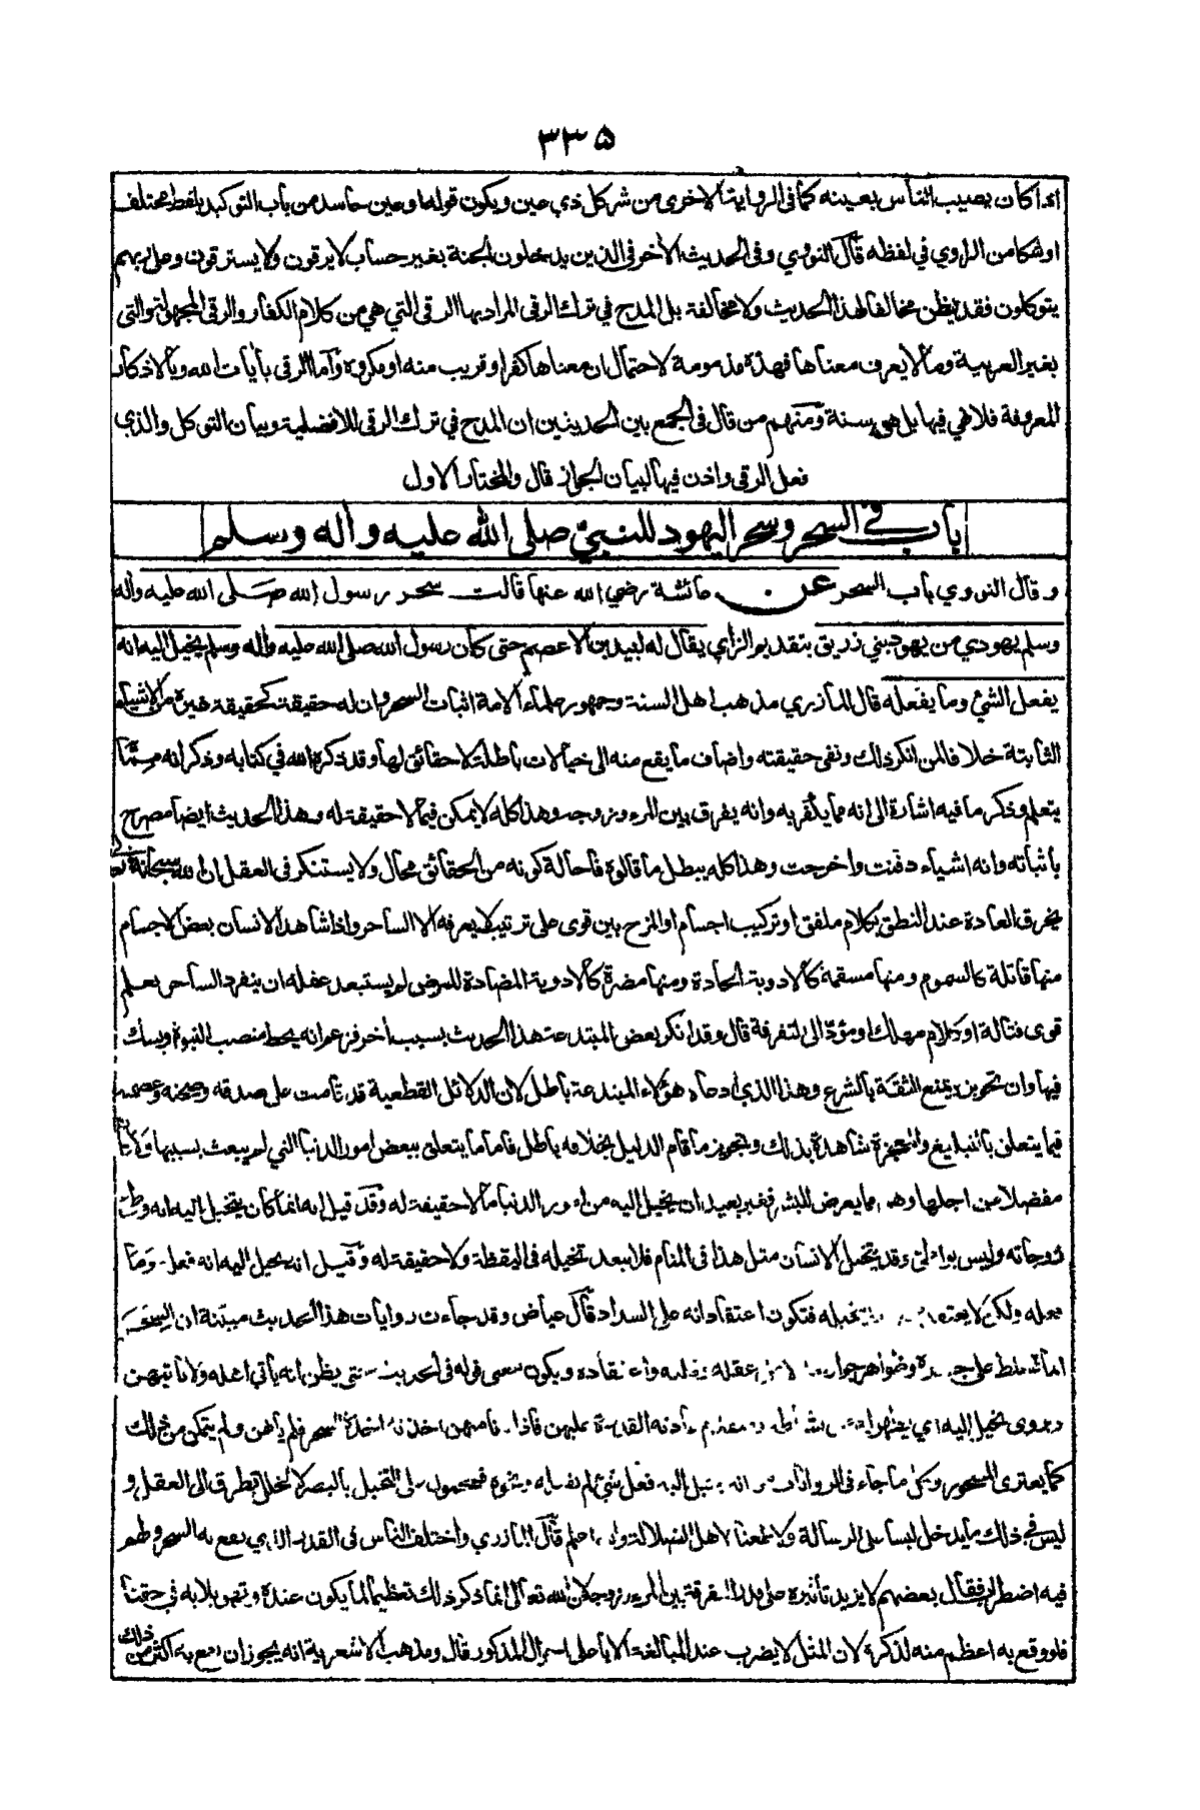 ٣٣٥
اذا كان يصيب الناس بعينه كما في الرواية الاخرى من شر كل ذي عين ويكون قوله وعين حاسد من باب التوكيد بلفظ مختلف
او شكا من الراوي في لفظه قال النووي وفي الحديث الآخر في الذين يدخلون الجنة بغير حساب لا يرقون ولا يسترقون وعلى ربهم
يتوكلون فقد يظن مخالفا لهذا الحديث ولا مخالفة بل المدح في ترك الرقى المراد بها الرقى التي هي من كلام الكفار والرقى المجهولة والتي
بغير العربية وما لا يعرف معناها فهذه مذمومة لاحتمال ان معناها كفر او قريب منه او مكروه وأما الرقى بأيات الله وبالاذكار
المعروفة فلا نهي فيها بل هو سنة ومنهم من قال في الجمع بين الحديثين ان المدح في ترك الرقى للافضلية وبيان التوكل والذي
فعل الرقى واذن فيها لبيان الجواز قال والمختار الاول
باب في السحر وسحر اليهود للنبي صلى الله عليه وأله وسلم
وقال النووي باب السحر عن عائشة رضي الله عنها قالت سحر رسول الله صلى الله عليه وأله
وسلم يهودي من يهود بني زريق بتقديم الزاي يقال له لبيد بن الاعصم حتى كان رسول الله صلى الله عليه وأله وسلم يخيل اليه انه
يفعل الشئ وما يفعله قال المازري مذهب اهل السنة وجمهور علماء الامة اثبات السحر وان له حقيقة كحقيقة غيره من الاشياء
الثابتة خلافا لمن انكر ذلك ونفى حقيقته واضاف ما يقع منه الى خيالات باطلة لا حقائق لها وقد ذكره الله في كتابه وذكر انه مما
يتعلم وذكر ما فيه اشارة الى انه مما يكفر به وانه يفرق بين المرء وزوجه وهذا كله لا يمكن فيما لا حقيقة له وهذا الحديث ايضا مصرح
باثباته وانه اشياء دفنت واخرجت وهذا كله يبطل ما قالوه فاحالة كونه من الحقائق محال ولا يستنكر في العقل ان الله سبحانه وتعالى
يخرق العادة عند النطق بكلام ملفق او تركيب اجسام او المزج بين قوى على ترتيب لا يعرفه الا الساحر واذا شاهد الانسان بعض الاجسام
منها قاتلة كالسموم ومنها مسقمة كالادوية الحادة ومنها مضرة كالادوية المضادة للمرض لم يستبعد عقله ان ينفرد الساحر بعلم
قوى قتالة او كلام مهلك او مؤد الى التفرقة قال وقد انكر بعض المبتدعة هذا الحديث بسبب أخر فزعم انه يحط منصب النبوة ويشك
فيها وان تجويزه يمنع الثقة بالشرع وهذا الذي ادعاه هؤلاء المبتدعة باطل لان الدلائل القطعية قد قامت على صدقه وصحته وعصمته
فيما يتعلق بالتبليغ والمعجزة شاهدة بذلك وتجويز ما قام الدليل بخلافه باطل فاما ما يتعلق ببعض امور الدنيا التي لم يبعث بسببها ولا كان
مفضلا من اجلها وهو مما يعرض للبشر فغير بعيد ان يخيل اليه من امور الدنيا ما لا حقيقة له وقد قيل انه انما كان يتخيل اليه انه وطئ
زوجاته وليس بواطئ وقد يتخيل الانسان مثل هذا في المنام فلا يبعد تخيله في اليقظة ولا حقيقة له وقيل انه يخيل اليه انه فعل وما
فعله ولكن لا يعتقد تخيله فتكون اعتقاداته على السداد قال عياض وقد جاءت روايات هذا الحديث مبينة ان السحر
انما تسلط على جسده وظواهر جوارحه لا على عقله وقلبه واعتقاده ويكون معنى قوله في الحديث حتى يظن انه يأتي اهله ولا يأتيهن
ويروى يخيل اليه اي يظهر له من نشاطه ومتقدم عادته القدرة عليهن فاذا دنا منهن اخذته اخذة السحر فلم يأتهن ولم يتمكن من ذلك
كما يعتري المسحور وكل ما جاء في الروايات من انه يخيل اليه فعل شئ لم يفعله ونحوه فمحمول على التخيل بالبصر لا لخلل تطرق الى العقل و
ليس في ذلك ما يدخل لبسا على الرسالة ولا طعنا لاهل الضلالة والله اعلم قال المازري واختلف الناس في القدر الذي يقع به السحر ولهم
فيه اضطراب فقال بعضهم لا يزيد تأثيره على قدر التفرقة بين المرء وزوجه لان الله تعالى انما ذكر ذلك تعظيما لما يكون عنده وتهويلا به في حقنا
فلو وقع به اعظم منه لذكره لان المثل لا يضرب عند المبالغة الا باعلى احوال المذكور قال ومذهب الاشعرية انه يجوز ان يقع به اكثر من ذلك